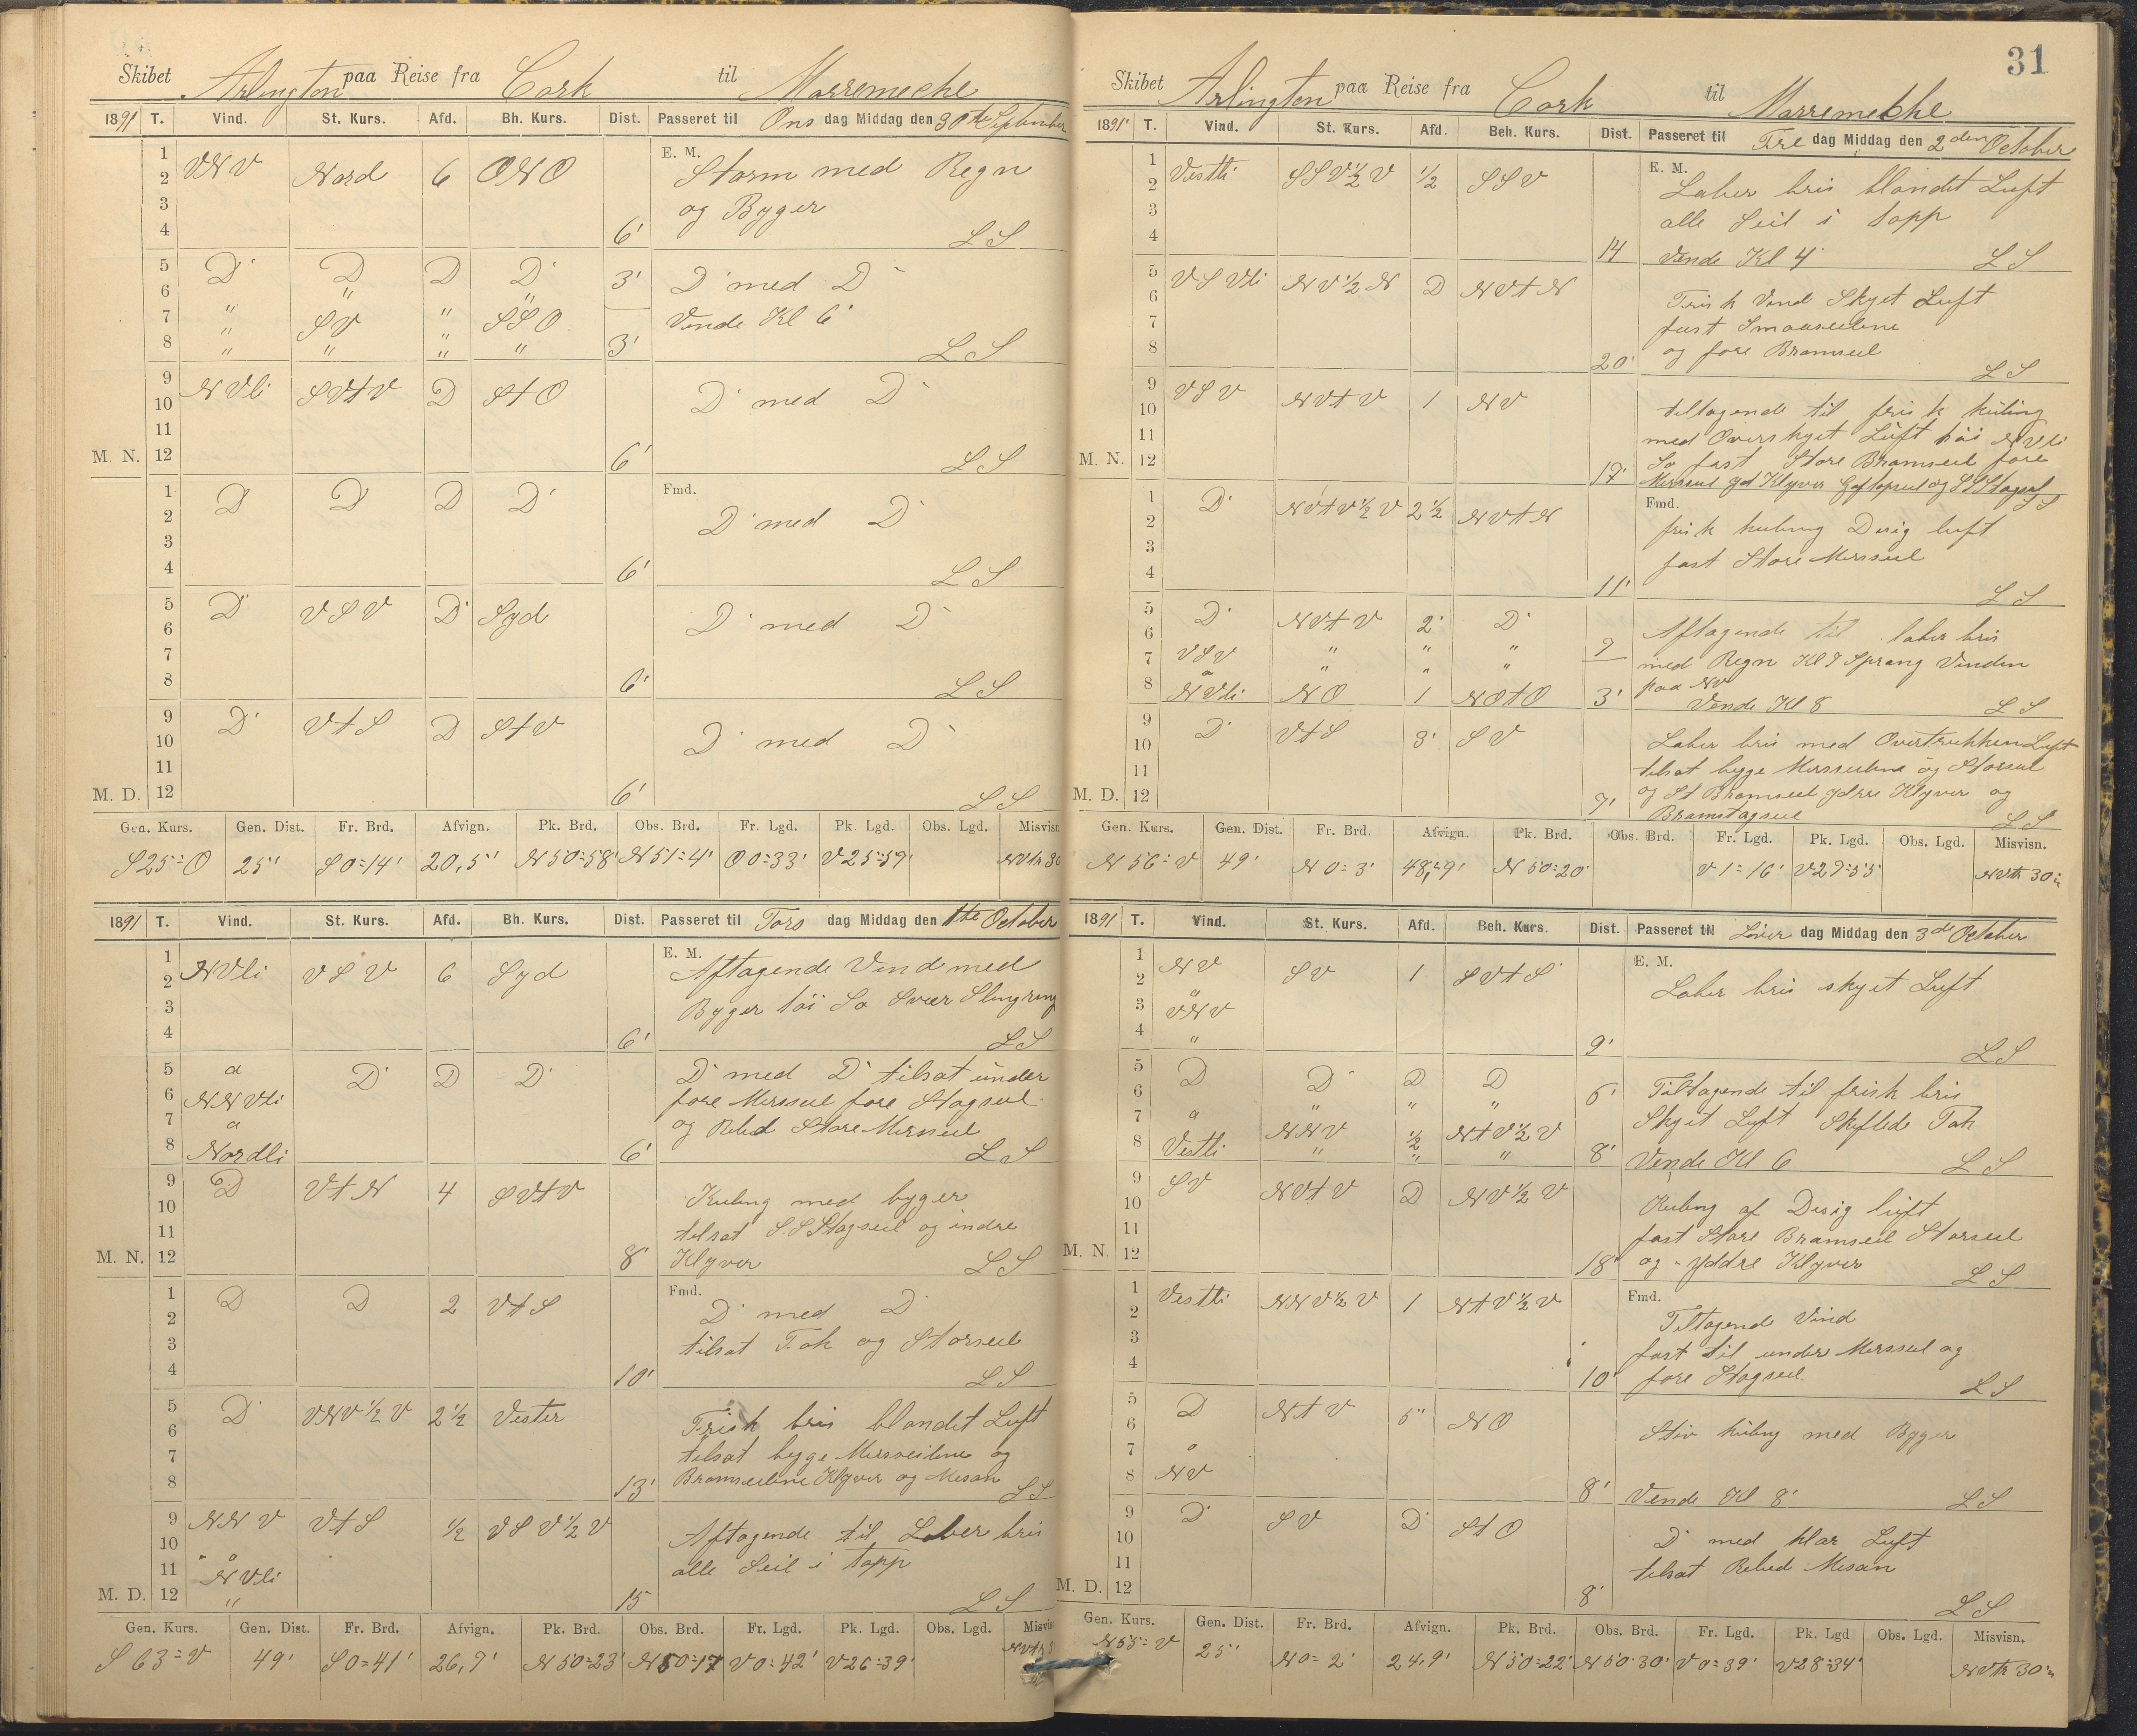 Skibet Arlington paa Reise fra Cork til Marremeche
1891 T. Vind. St. Kurs. Afd. Bh. Kurs. Dist. Passeret til Ons dag Middag den 30te September
1 E. M.
2 VNV Nord 6 ONO Storm med Regn
3 og Byger
4 6' LS
5 D' D D D' 3' D' med D'
6 " "
7 " SV " SSO Vende Kl 6'
8 " " " " 3' LS
9 NVli SVtV D StO D' med D'
10
11
M. N. 12 6' LS
1 D D D D' Fmd.
2 D' med D'
3
4 6' LS
5 D' VSV D' Syd D' med D'
6
7
8 6' LS
9 D' VtS D StV D' med D'
10
11
M. D. 12 6' LS
Gen. Kurs. Gen. Dist. Fr. Brd. Afvign. Pk. Brd. Obs. Brd. Fr. Lgd. Pk. Lgd. Obs. Lgd. Misvisn.
S25=O 25' S0=14' 20,5' N50=58' N51=4' O0=33' V25=57'
1891 T. Vind. St. Kurs. Afd. Bh. Kurs. Dist. Passeret til Tors dag Middag den 1te October
1 E. M.
2 NVli VSV 6 Syd Aftagende Vind med
3 Byger høi Sø Svær Slingring
4 6' LS
5 a D' D D' D' med D' tilsat under
6 NNVli fore Mersseil fore Stagseil
7 a og Rebed Store Mersseil
8 Nordli 6' LS
9 D VtN 4 SVtV Kuling med byger
10 tilsat SSStagseil og indre
11
M. N. 12 8' Klyver LS
1 D D 2 VtS Fmd.
2 D' med D'
3 tilsat Fok og Storseil
4 10' LS
5 D' VNV½V 2½ Vester Frisk bris blandet Luft
6 tilsat begge Mersseilene og
7 Bramseilene Klyver og Mesan
8 13' LS
9 NNV VtS ½ VSV½V Aftagende til Laber bris
10 alle Seil i topp
11 a NVli
M. D. 12 " 15 LS
Gen. Kurs. Gen. Dist. Fr. Brd. Afvign. Pk. Brd. Obs. Brd. Fr. Lgd. Pk. Lgd. Obs. Lgd.
S63=V 49' S0=41' 26,7' N50=23' N50=17 V0=42' V26=39'
31
Skibet Arlington paa Reise fra Cork til Marremeche
1891 T. Vind. St. Kurs. Afd. Beh. Kurs. Dist. Passeret til Fre dag Middag den 2den October
1 Vestli SSV½V ½ SSV E. M.
2 Laber bris blandet Luft
3 alle Seil i topp
4 14 Vende Kl 4' LS
5 VSVli NV½N D NVtN
6 Frisk Vind Skyet Luft
7 fast Smaaseilene
8 20' og fore Bramseil LS
9 VSV NVtV 1 NV
10 tiltagende til frisk kuling
11 med Overskyet Luft høi NVli
M. N. 12 17' Sø fast Store Bramseil fore
Mersseil yd Klyver Gaftopseil og SSStagseil LS
1 D' NVtV½V 2½ NVtN Fmd.
2 frisk kuling Disig luft
3 fast Store Mersseil
4 11' LS
5 D' NVtV 2' D' Aftagende til laber bris
6 7
7 VSV " " " med Regn Kl 7 Sprang Vinden
a " " " paa NV
8 NVli NO 1 NOtO 3' Vende Kl 8 LS
9 D' VtS 3' SV Laber bris med Overtrukken Luft
10 tilsat begge Mersseilene og Storseil
11 og St Bramseil ydere Klyver og
M. D. 12 7' Bramstagseil LS
Gen. Kurs. Gen. Dist. Fr. Brd. Afvign. Pk. Brd. Obs. Brd. Fr. Lgd. Pk. Lgd. Obs. Lgd. Misvisn.
N56=V 49' N0=3' 48,=9' N50=20' V1=16' V27=55'
1891 T. Vind. St. Kurs. Afd. Beh. Kurs. Dist. Passeret til Löver dag Middag den 3de October
1 NV SV 1 SVtS E. M.
2 a Laber bris skyet Luft
3 VNV
4 " 9' LS
5 D D' D D
6 " " " 6' Tiltagende til frisk bris
7 a NNV ½ NtV½V Skyet Luft Skiftede Fok
8 Vestli " " " 8' Vende Kl 6 LS
9 SV NVtV D NV½V
10 Kuling af Disig luft
11 fast Store Bramseil Storseil
M. N. 12 18' og yddre Klyver LS
1 Vestli NNV½V 1 NtV½V Fmd.
2 Tiltagende Vind
3 fast til under Mersseil og
4 10' fore Stagseil LS
5 D NtV 5" NO
6 Stiv kuling med Byger
7 a
8 NV 8' Vende Kl 8' LS
9 D' SV D' StO
10 D' med klar Luft
11 tilsat Rebed Mesan
M. D. 12 8' LS
Gen. Kurs. Gen. Dist. Fr. Brd. Afvign. Pk. Brd. Obs. Brd. Fr. Lgd. Pk. Lgd Obs. Lgd. Misvisn.
N55=V 25' N0=2' 24,9' N50=22' N50=30' V0=39' V28=34'